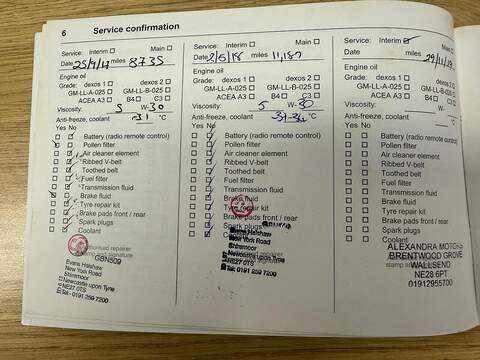 6 Service confirmation
Service: Interim Main
Date 25/9/17 miles 8735
Engine oil
Grade: dexos 1 dexos 2
GM-LL-A-025 GM-LL-B-025
ACEA A3 B4 C3
Viscosity: 5 W-30
Anti-freeze, coolant -31 °C
Yes No
Battery (radio remote control)
Pollen filter
Air cleaner element
Ribbed V-belt
Toothed belt
Fuel filter
Transmission fluid
Brake fluid
Tyre repair kit
Brake pads front / rear
Spark plugs
Coolant
Authorised repairer
stamp and signature
GBN509
Evans Halshaw
New York Road
Shiremoor
Newcastle upon Tyne
NE27 0TS
Tel: 0191 259 7200
Service: Interim Main
Date miles
Engine oil
Grade: dexos 1 dexos 2
GM-LL-A-025 GM-LL-B-025
ACEA A3 B4 C3
Viscosity: 5 W-30
Anti-freeze, coolant °C
Yes No
Battery (radio remote control)
Pollen filter
Air cleaner element
Ribbed V-belt
Toothed belt
Fuel filter
Transmission fluid
Brake fluid
Tyre repair kit
Brake pads front / rear
Spark plugs
Evans Halshaw
New York Road
Shiremoor
Newcastle upon Tyne
NE27 0TS
Tel: 0191 259 7200
Service: Interim Main
Date miles
Engine oil
Grade: dexos 1
GM-LL-A-025 GM-LL-B-025
ACEA A3 B4 C3
Viscosity: W-
Anti-freeze, coolant °C
Yes No
Battery (radio remote control)
Pollen filter
Air cleaner element
Ribbed V-belt
Toothed belt
Fuel filter
Transmission fluid
Brake fluid
Tyre repair kit
Brake pads front / rear
Spark plugs
Coolant
ALEXANDRA MOTORS
BRENTWOOD GROVE
WALLSEND
NE28 6PT
01912955700